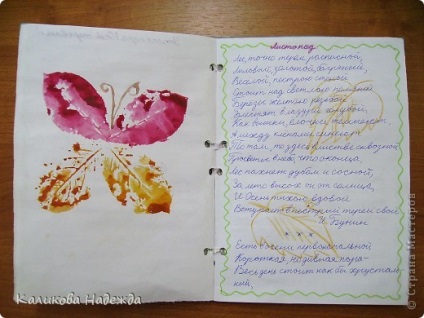 Листопад
Лес, точно терем расписной,
Лиловый, золотой, багряный,
Весёлой, пёстрою стеной
Стоит над светлою поляной.
Берёзы жёлтою резьбой
Блестят в лазури голубой,
Как вышки, ёлочки темнеют,
А между клёнами синеют
То там, то здесь в листве сквозной
Просветы в небо, что оконца.
Лес пахнет дубом и сосной,
За лето высох он от солнца,
И Осень тихою вдовой
Вступает в пёстрый терем свой
И. Бунин
* * *
Есть в осени первоначальной
Короткая, но дивная пора -
Весь день стоит как бы хрусталь-
ный,
Каликова Надежда
© Страна Мастеров